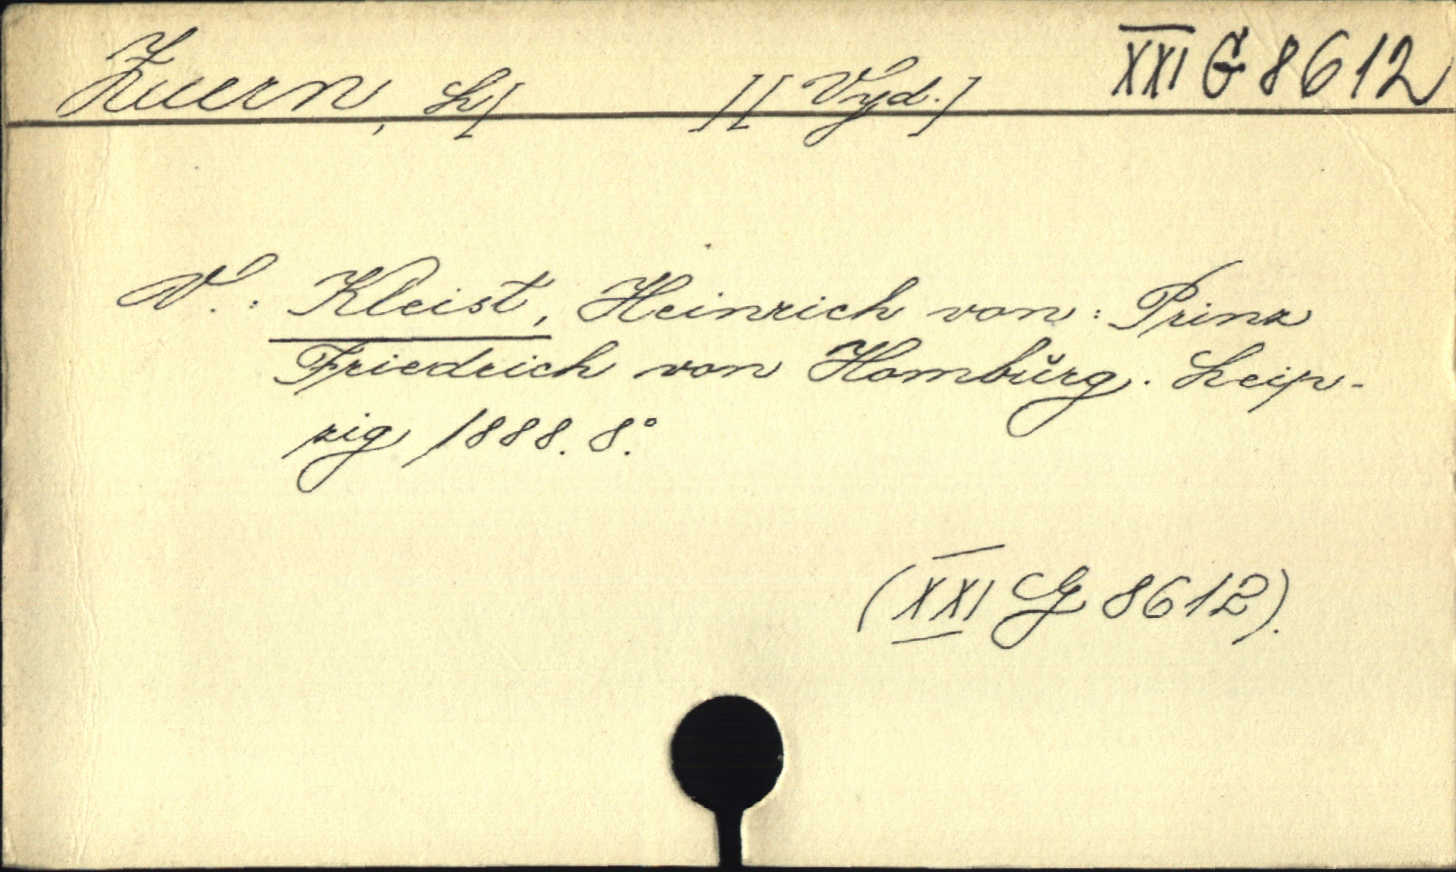 Zuern, L[ ][Vyd.] XXI G 8612
V.: Kleist, Heinrich von: Prinz
Friedrich von Homburg. Leip-
zig 1888. 8°.
(XXI G 8612).